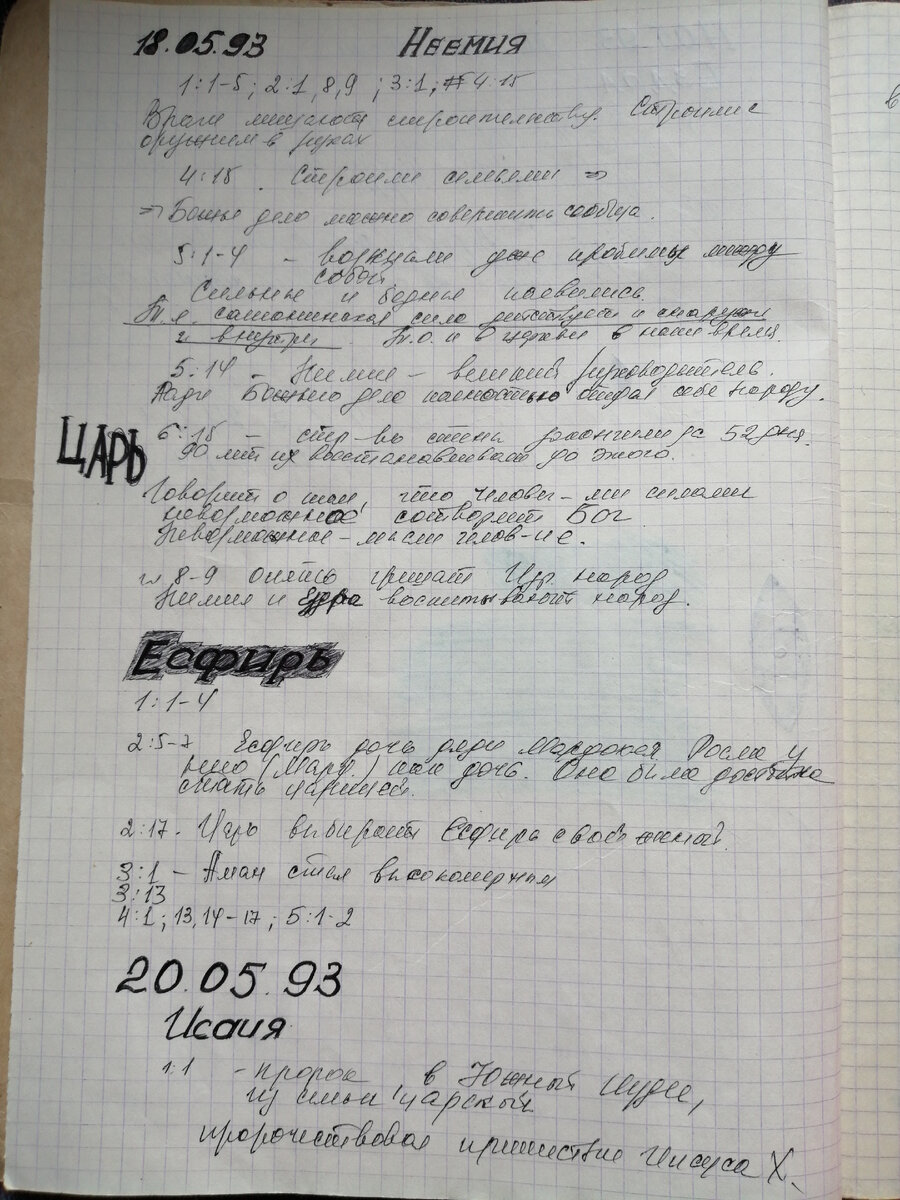 18.05.93 Неемия
1:1-5; 2:1, 8,9 ; 3:1; 4:15
Враги мешают строительству. Строили с
оружием в руках
4:15. Строили семьями ⇒
⇒ Божье дело можно совершить сообща.
5:1-4 - возникли уже проблемы между
собой
Сильные и бедные появились.
Т.е. сатанинская сила действует и снаружи
и внутри Т.о. и в церкви в наше время.
5:14 - Немия - великий руководитель.
Ради Божьего дела полностью отдал себя народу.
ЦАРЬ
6:15 - стр-во стены закончили за 52 дня.
90 лет их восстанавливали до этого.
Говорит о том, что человеч-ми силами
невозможное сотворит Бог.
Невозможное - мысли челов-ие.
8-9 опять грешат Изр. народ
Немия и Ездра воспитывают народ.
Есфирь
1:1-4
2:5-7 Есфирь дочь дяди Мардохея. Росла у
него (Мард.) как дочь. Она была достойна
стать царицей.
2:17. Царь выбирает Есфирь своей женой.
3:1 - Аман стал высокомерным
3:13
4:1; 13,14-17; 5:1-2
20.05.93
Исаия
1:1 - пророк в Южный Иудее,
из семьи царский
пророчествовал пришествие Иисуса Х.